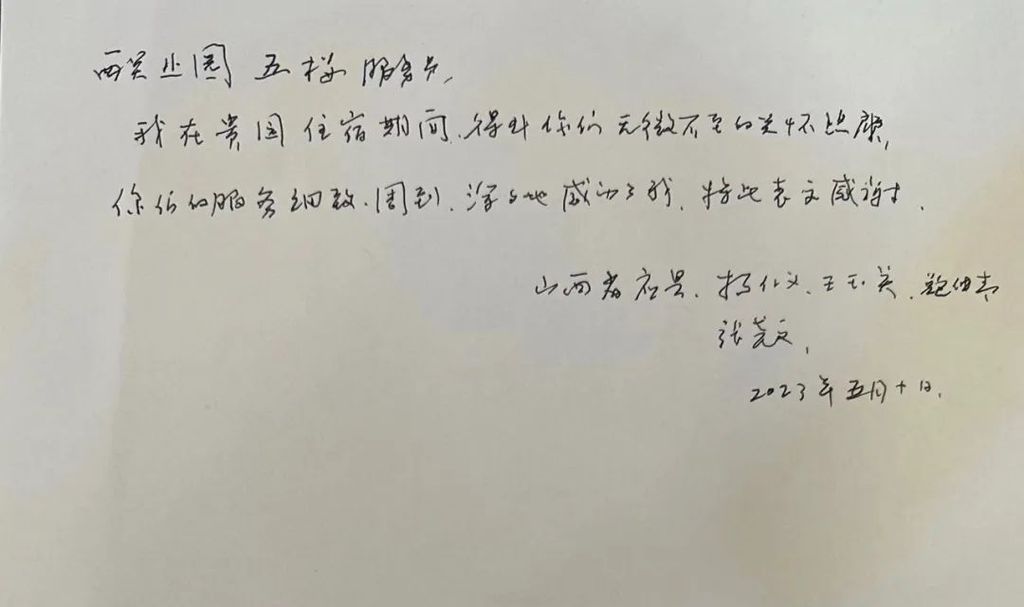 五楼服务员,
我在贵园住宿期间、得到你们无微不至的关怀照顾,
你们的服务细致、周到、深深地感动了我、特此表示感谢.
山西省应县、杨仁义、王玉英、
张
2023年五月十日.